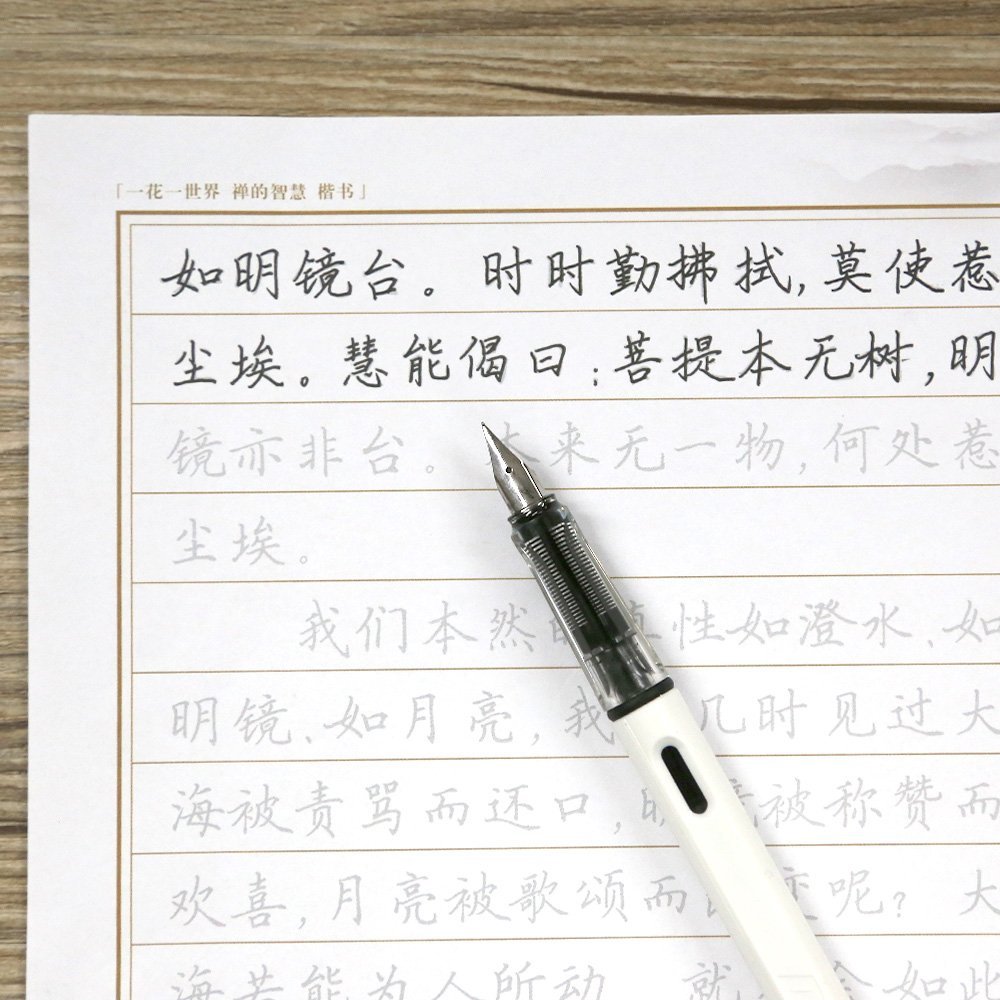 「一花一世界 禅的智慧 楷书」
如明镜台。时时勤拂拭,莫使惹
尘埃。慧能偈曰:菩提本无树,明
镜亦非台。本来无一物,何处惹
尘埃。
我们本然的真性如澄水、如
明镜、如月亮,我 几时见过大
海被责骂而还口,明镜被称赞而
欢喜,月亮被歌颂而 变呢?大
海若能为人所动 就 会如此